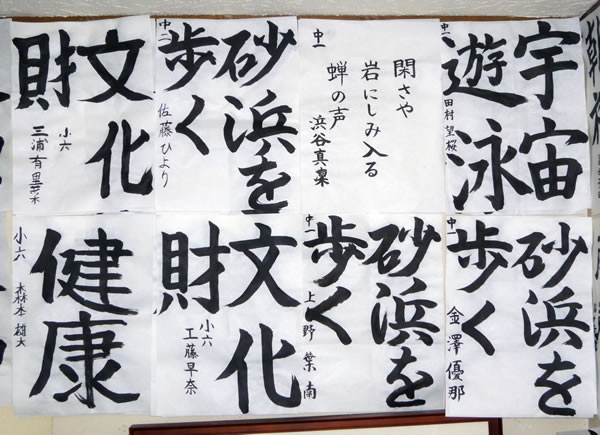 宇宙
遊泳
田村望桜
閑さや
岩にしみ入る
蝉の声
中一
浜谷真凜
砂浜を
歩く
中二
佐藤ひより
文化
財
小六
三浦有里
砂浜を
歩く
中一
金澤優那
砂浜を
歩く
中一
上野葉南
文化
財
小六
工藤早奈
健康
小六
森本雄大